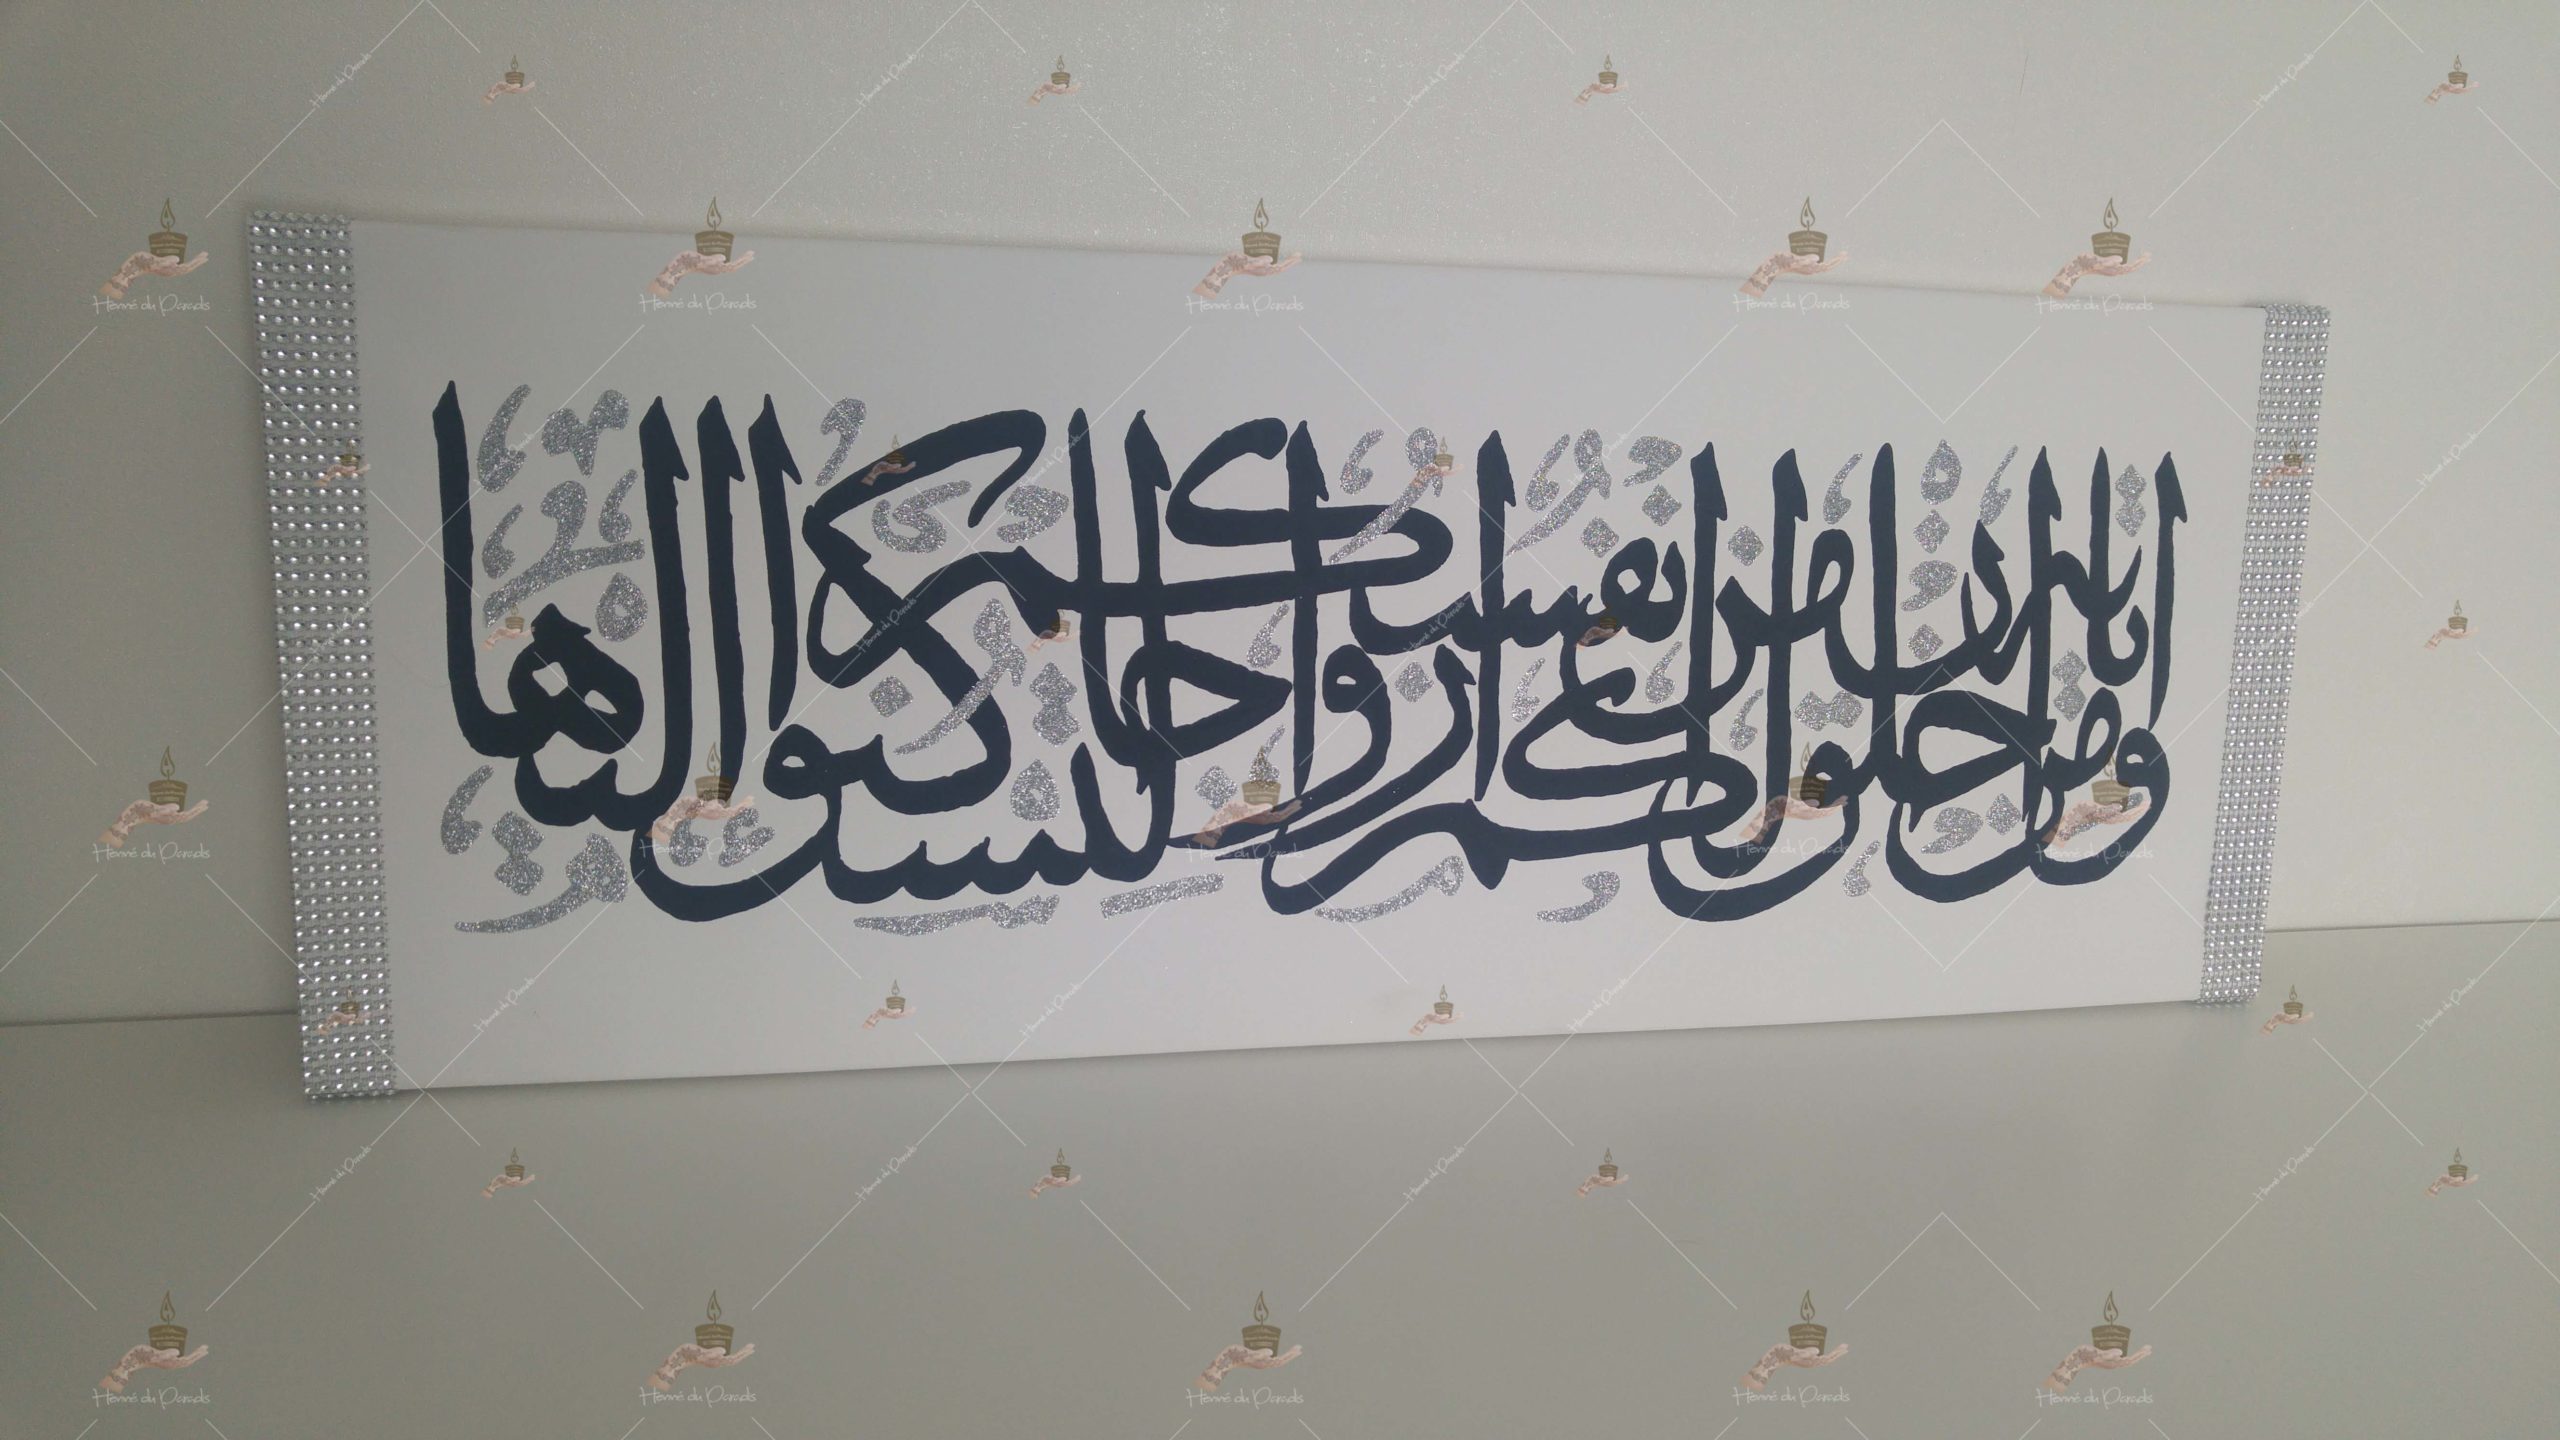 ومن آياته أن خلق لكم من أنفسكم أزواجا لتسكنوا إليها
Henné du Paradis